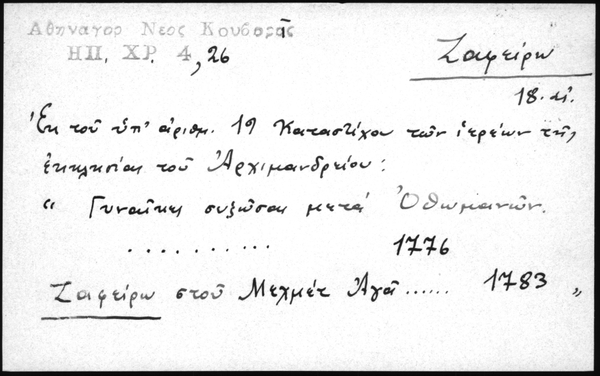 Αθηναγορ Νεος Κουβαρᾶς
ΗΠ. ΧΡ. 4, 26
Ζαφείρω
18. αἰ.
Ἐκ τοῦ ὑπ' ἀριθμ. 19 Καταστίχου τῶν ἱερέων τῆς
ἐκκλησίας τοῦ Ἀρχιμανδρείου:
“ Γυναῖκες συζῶσαι μετά Ὀθωμανῶν.
.......... 1776
Ζαφείρω στοῦ Μεχμέτ Ἀγᾶ...... 1783 „